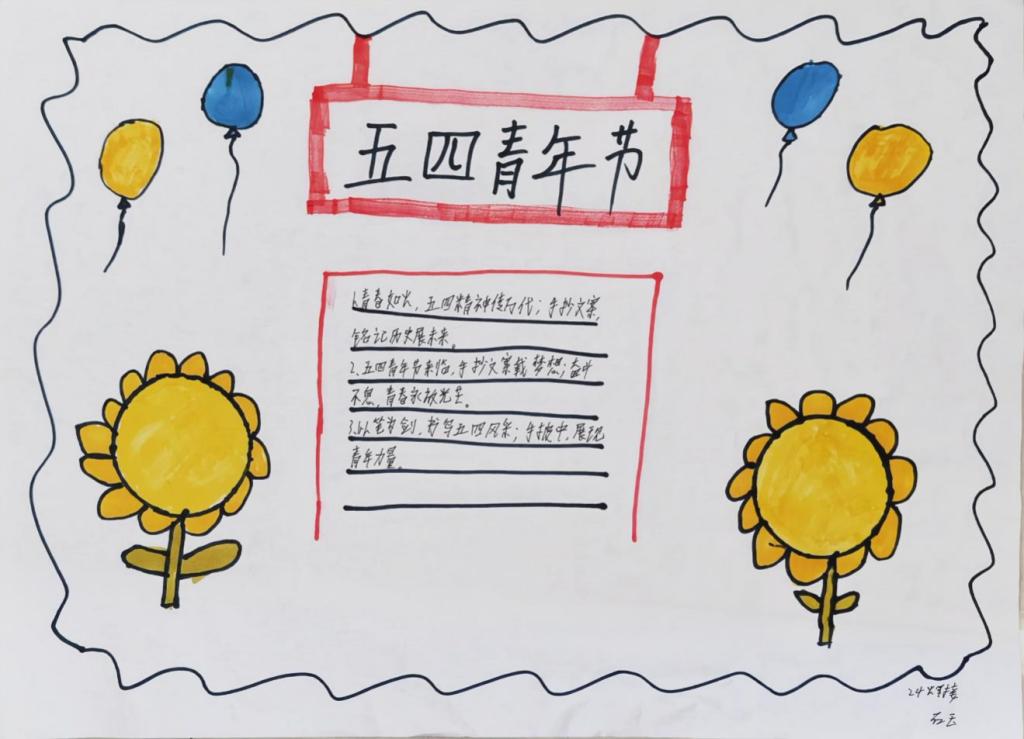 五四青年节
1.青春如火，五四精神传万代；手抄文案，
铭记历史展未来。
2.五四青年节来临，手抄文案载梦想；奋斗
不息，青春永放光芒。
3.以笔为剑，抄写五四风采；手报中，展现
青年力量。
24焊接